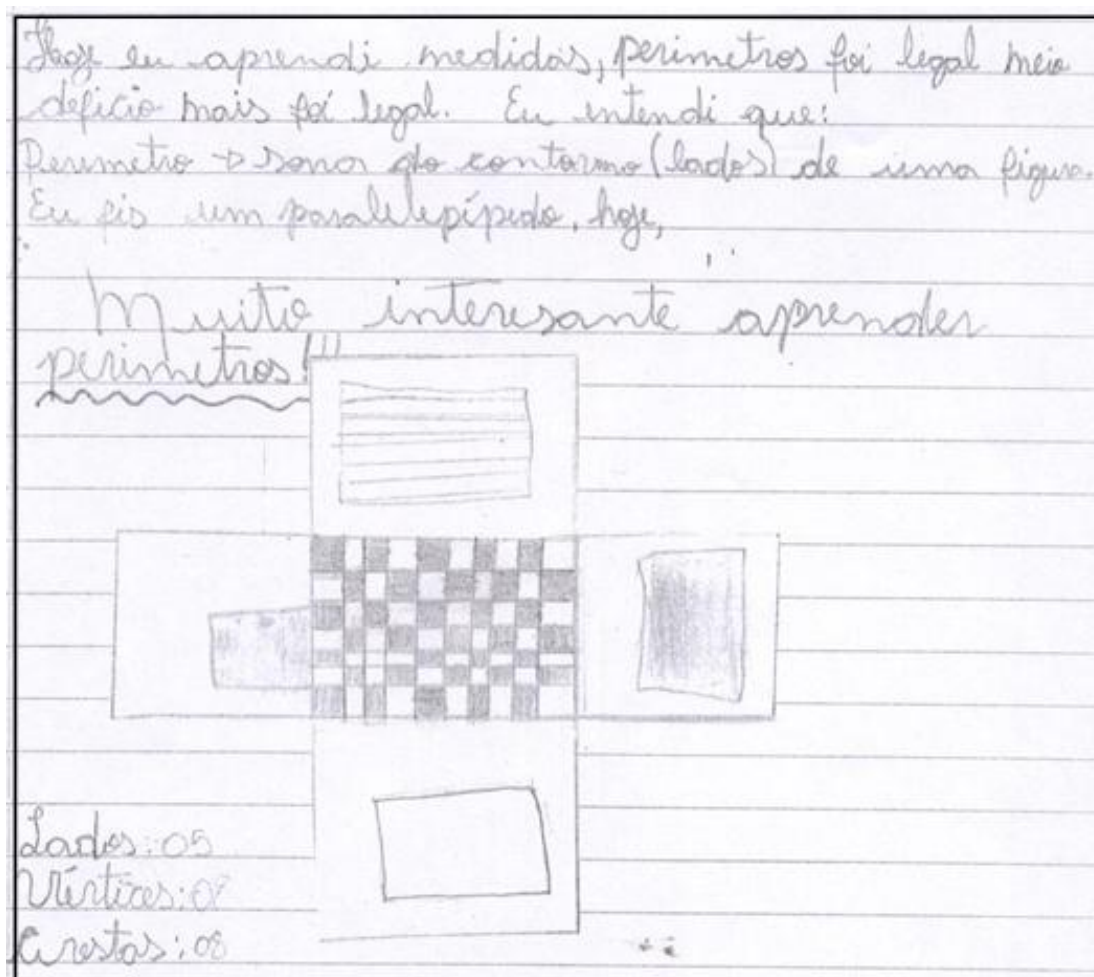 Hoje eu aprendi medidas, perimetros foi legal meio
deficio mais foi legal. Eu entendi que:
Perimetro → soma do contorno (lados) de uma figura.
Eu fis um paralelepípedo, hoje,
Muito interesante aprender
perimetros!!!
Lados: 05
Vértices: 08
Arestas: 08